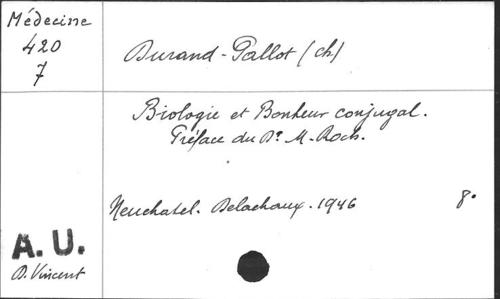 Médecine
420
7
Durand-Pallot (ch)
Biologie et Bonheur conjugal.
Préface du Dr M. Roch.
Neuchatel. Delachaux. 1946 8º
A.U.
D. Vincent